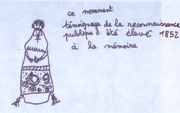 ce monument
témoignage de la reconnaissance
publique a été élevé 1852
à la mémoire